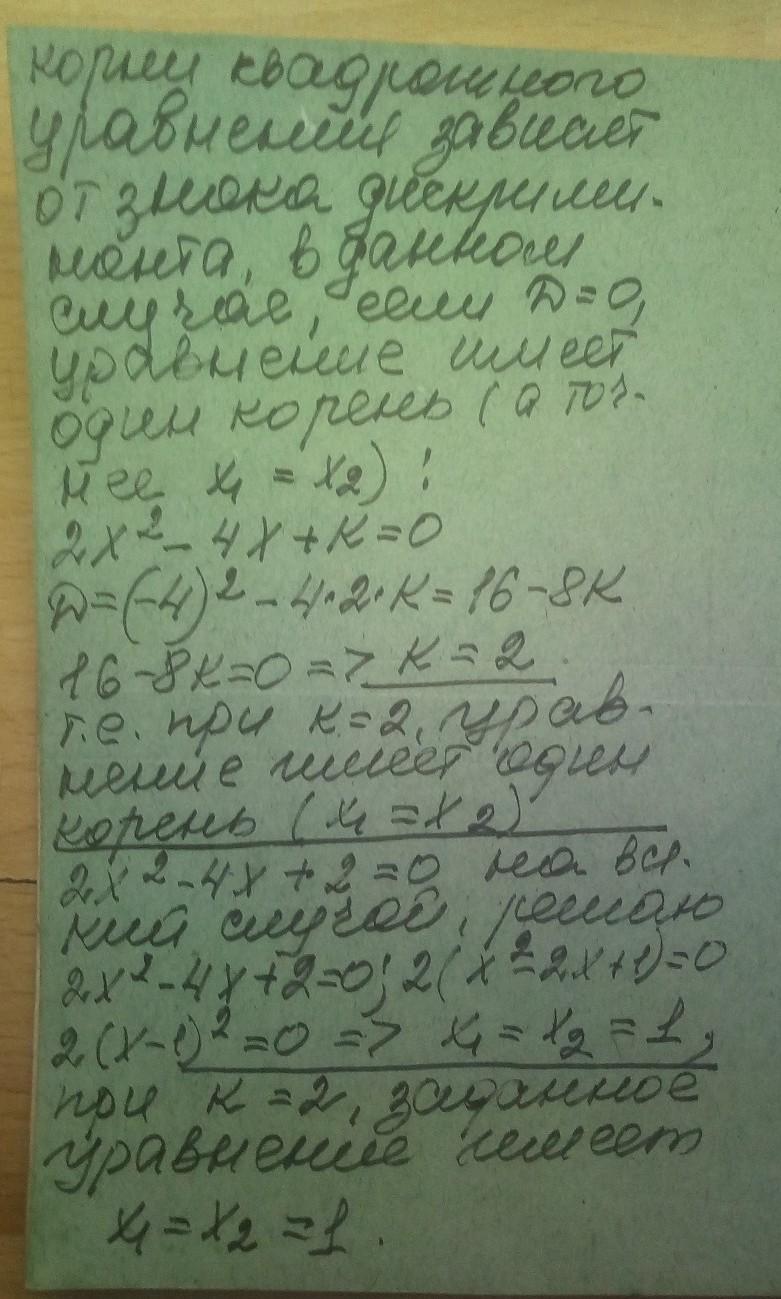 корни квадратного
уравнения зависят
от знака дискрими-
нанта, в данном
случае, если D=0,
уравнение имеет
один корень (а точ-
нее x₁ = x₂) :
2x² - 4x + к = 0
D=(-4)² - 4·2·к = 16 - 8к
16 - 8к=0 => к = 2.
т.е. при к=2, урав-
нение имеет один
корень (x₁ = x₂)
2x² - 4x + 2 = 0 на вся-
кий случай, решаю
2x² - 4x + 2=0; 2(x²-2x+1)=0
2(x-1)² = 0 => x₁ = x₂ = 1,
при к = 2, заданное
уравнение имеет
x₁ = x₂ = 1.